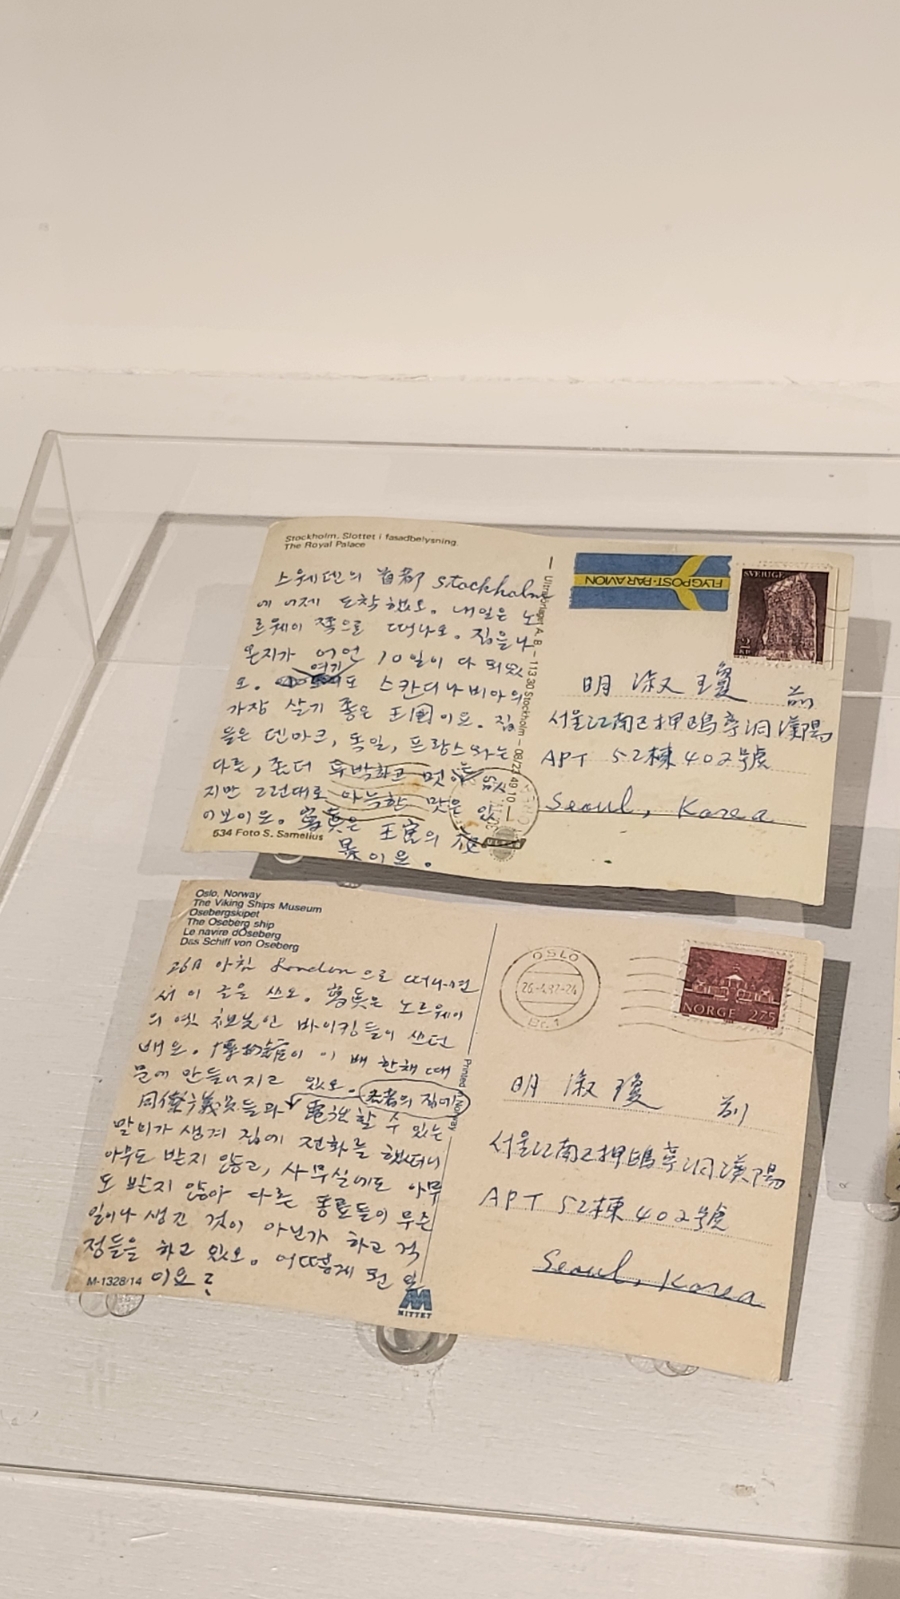 Stockholm, Slottet i fasadbelysning.
The Royal Palace
스웨덴의 首都 Stockholm
에 어제 도착했오. 내일은 노
르웨이 쪽으로 떠나오. 집을 나
온지가 어언 10일이 다 되었
오. 여기도 스칸디나비아의
가장 살기 좋은 王國이요. 집
들은 덴마크, 독일, 프랑스와는
다른, 좀더 투박하고 멋이 없
지만 그런대로 아늑한 맛은 있
어보이오. 寫眞은 王宮의 夜
景이요.
534 Foto S. Samelius
Ultraförlaget A.B. – 113 30 Stockholm – 08/23 49 10
FLYGPOST·PAR AVION
SVERIGE
明 淑 瓊 前
서울江南区狎鷗亭洞漢陽
APT 52棟 402號
Seoul, Korea
Oslo, Norway
The Viking Ships Museum
Osebergskipet
The Oseberg ship
Le navire dOseberg
Das Schiff von Oseberg
26日 아침 London으로 떠나면
서 이 글을 쓰오. 寫眞은 노르웨이
의 옛 차림인 바이킹들이 쓰던
배요. 博物館이 이 배 한채 때
문에 만들어지고 있오. 老者의 집에서
同僚議員들과 電話할 수 있는
말미가 생겨 집에 전화를 했더니
아무도 받지 않고, 사무실에도 아무
도 받지 않아 다른 동료들이 무슨
일이나 생긴 것이 아닌가 하고 걱
정들을 하고 있오. 어떻게 된 일
이요?
M-1328/14
MITTET
OSLO
NORGE 275
明 淑 瓊 前
서울江南区狎鷗亭洞漢陽
APT 52棟 402號
Seoul, Korea